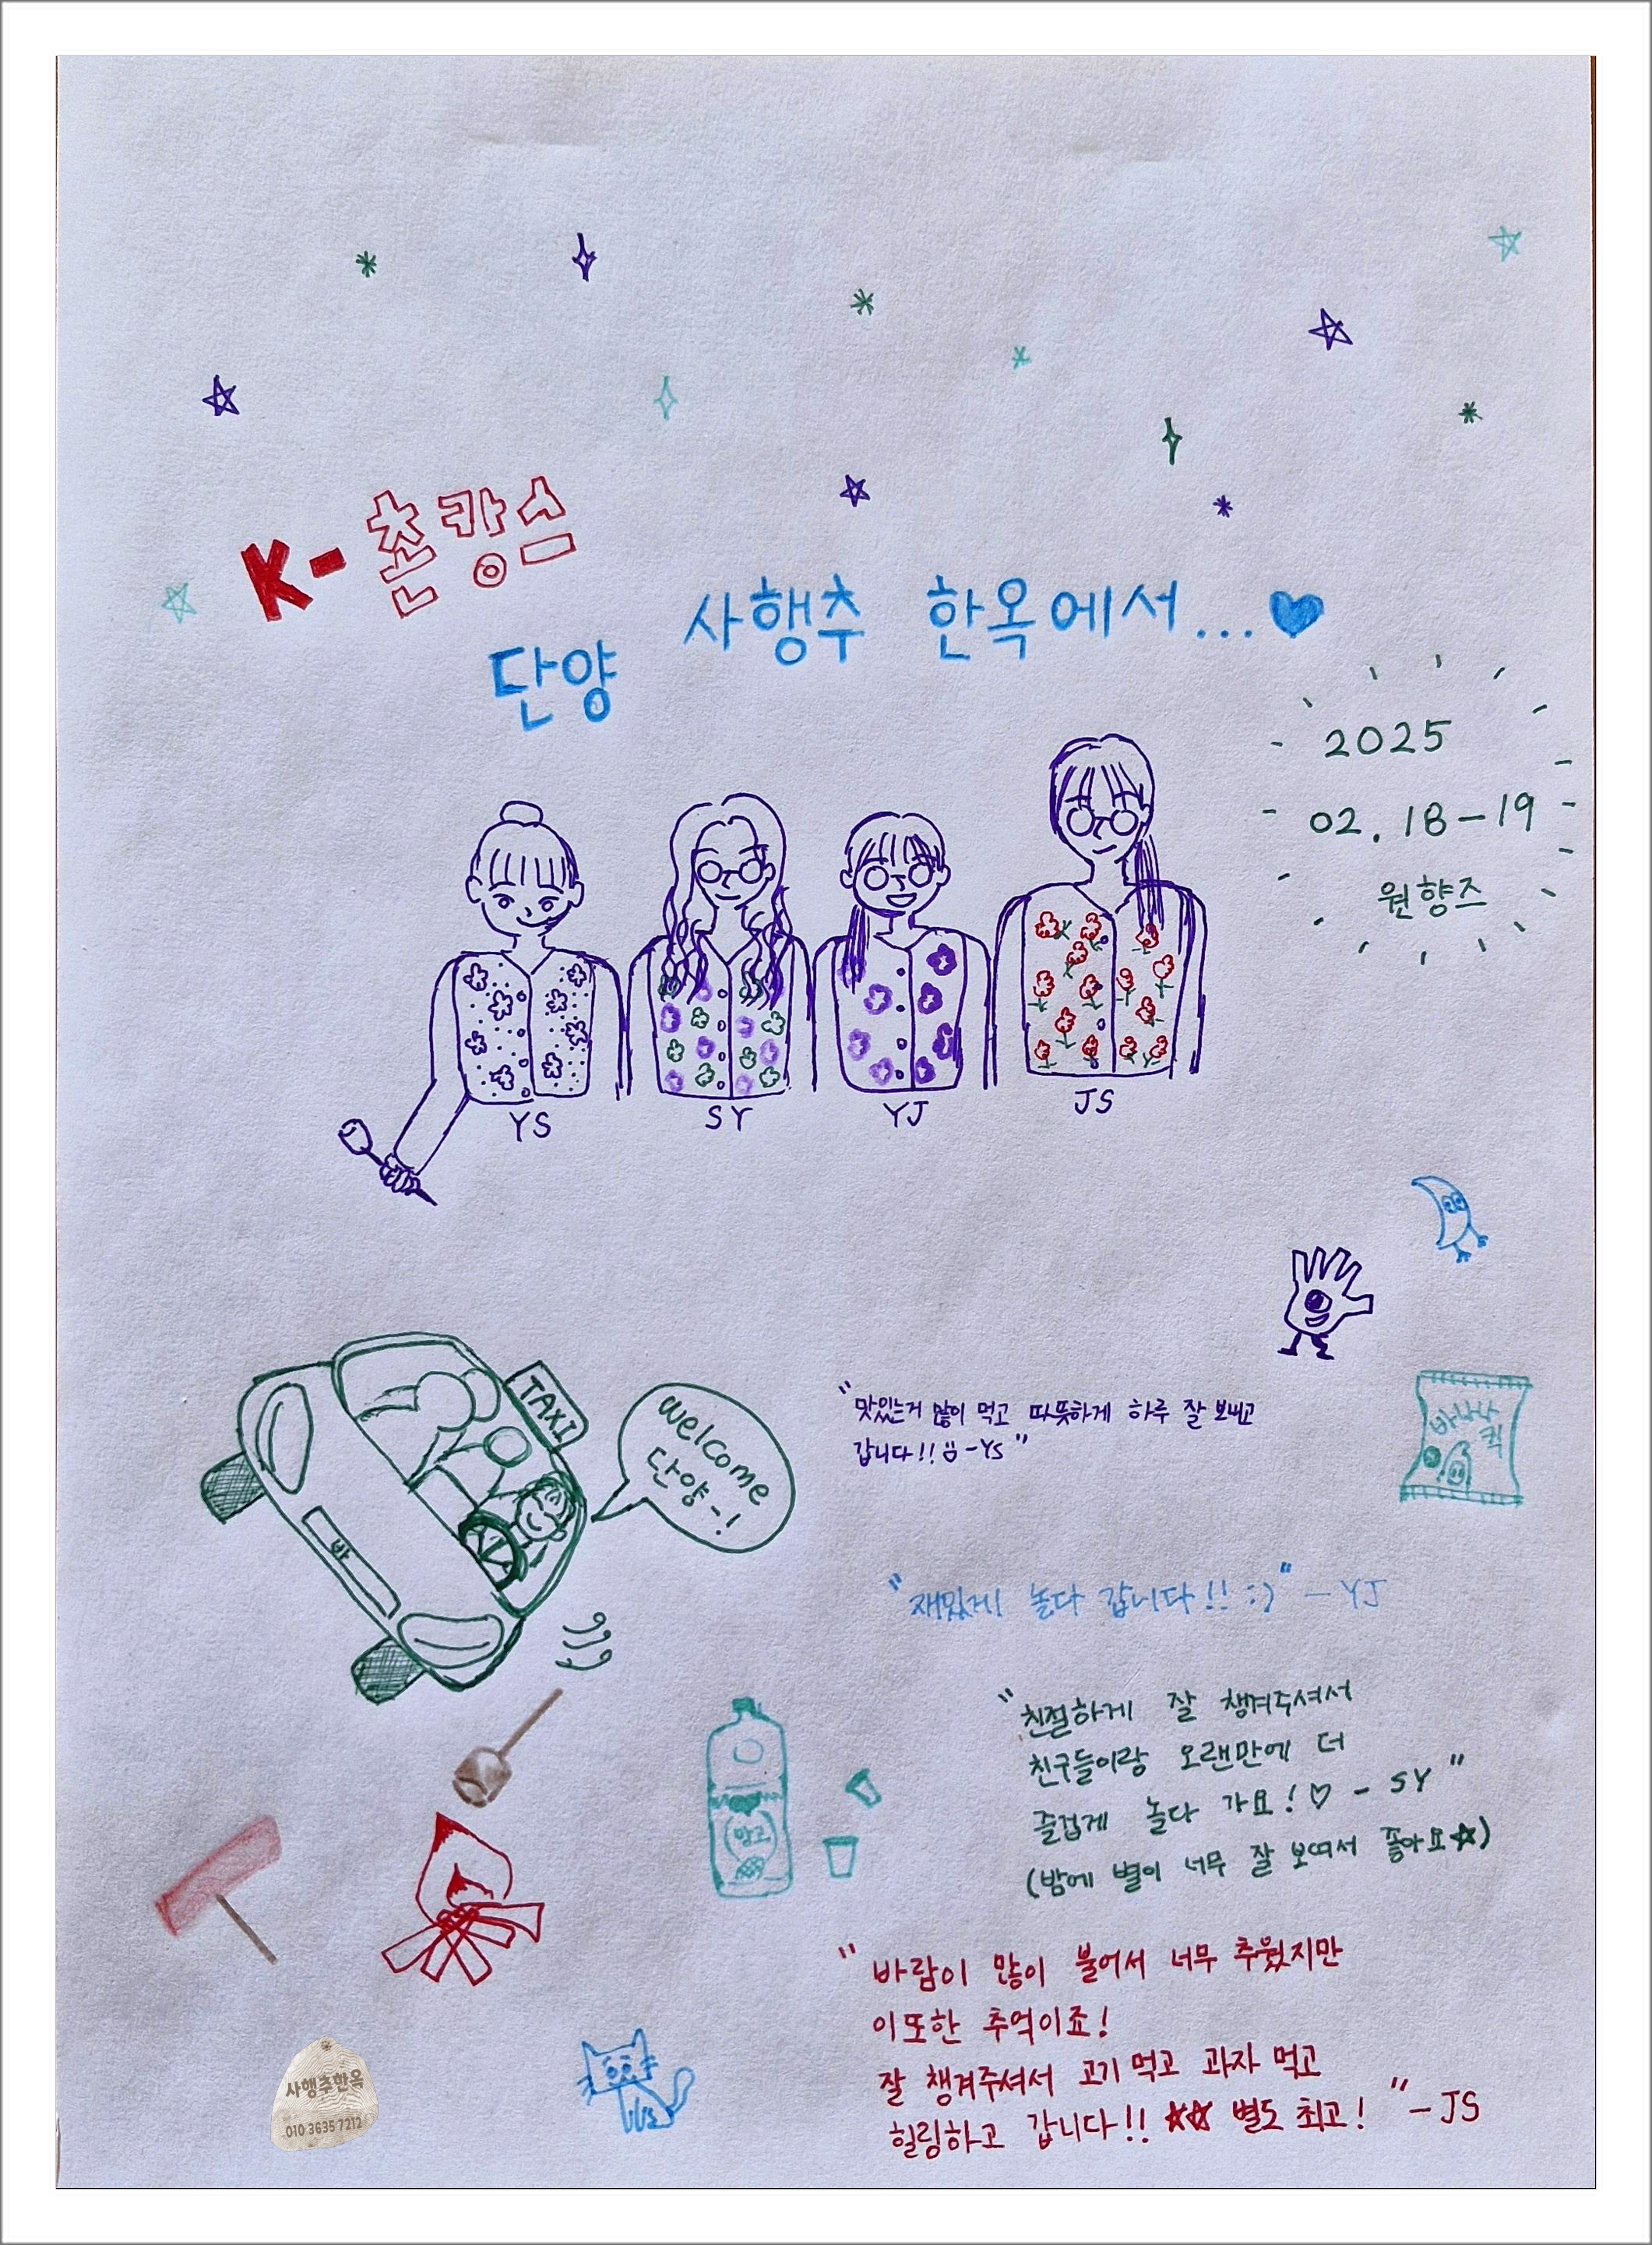 K-촌캉스
단양 사행추 한옥에서...♥
2025
02.18-19
원향즈
YS
SY
YJ
JS
TAXI
welcome
단양-!
바
바나나
킥
"맛있는거 많이 먹고 따뜻하게 하루 잘 보내고
갑니다!! -YS"
"재밌게 놀다 갑니다!! :)" - YJ
"친절하게 잘 챙겨주셔서
친구들이랑 오랜만에 더
즐겁게 놀다 가요!♡ - SY"
(밤에 별이 너무 잘 보여서 좋아요☆)
망고
"바람이 많이 불어서 너무 추웠지만
이또한 추억이죠!
잘 챙겨주셔서 고기 먹고 과자 먹고
힐링하고 갑니다!! ☆☆ 별도 최고!" - JS
사행추한옥
010 3635 7212